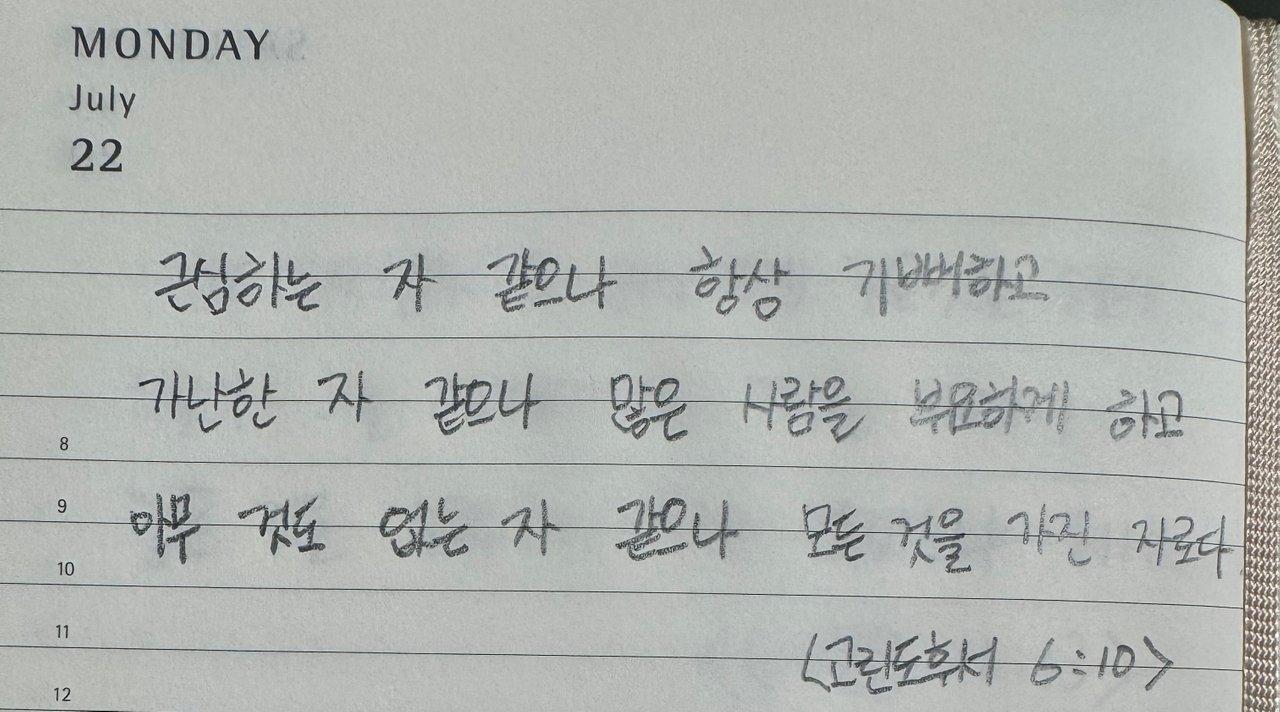 MONDAY
July
22
근심하는 자 같으나 항상 기뻐하고
가난한 자 같으나 많은 사람을 부요하게 하고
8
9
아무 것도 없는 자 같으나 모든 것을 가진 자로다
10
11
<고린도후서 6:10>
12